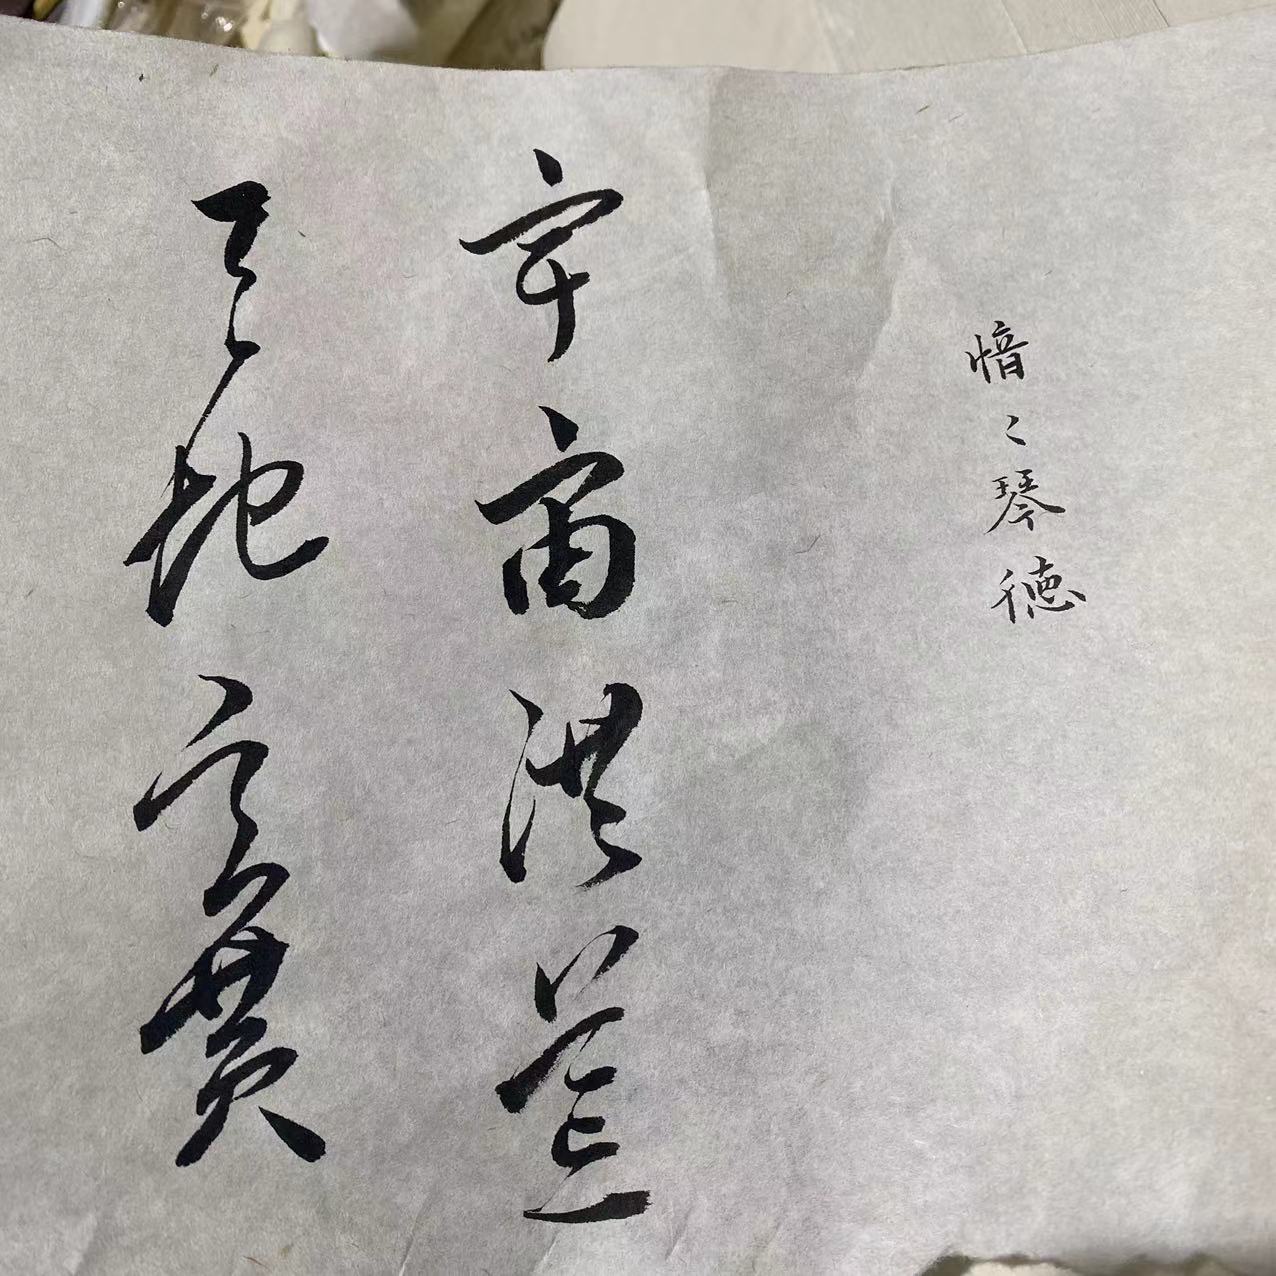 愔々琴徳
宇宙洪荒
天地玄黄